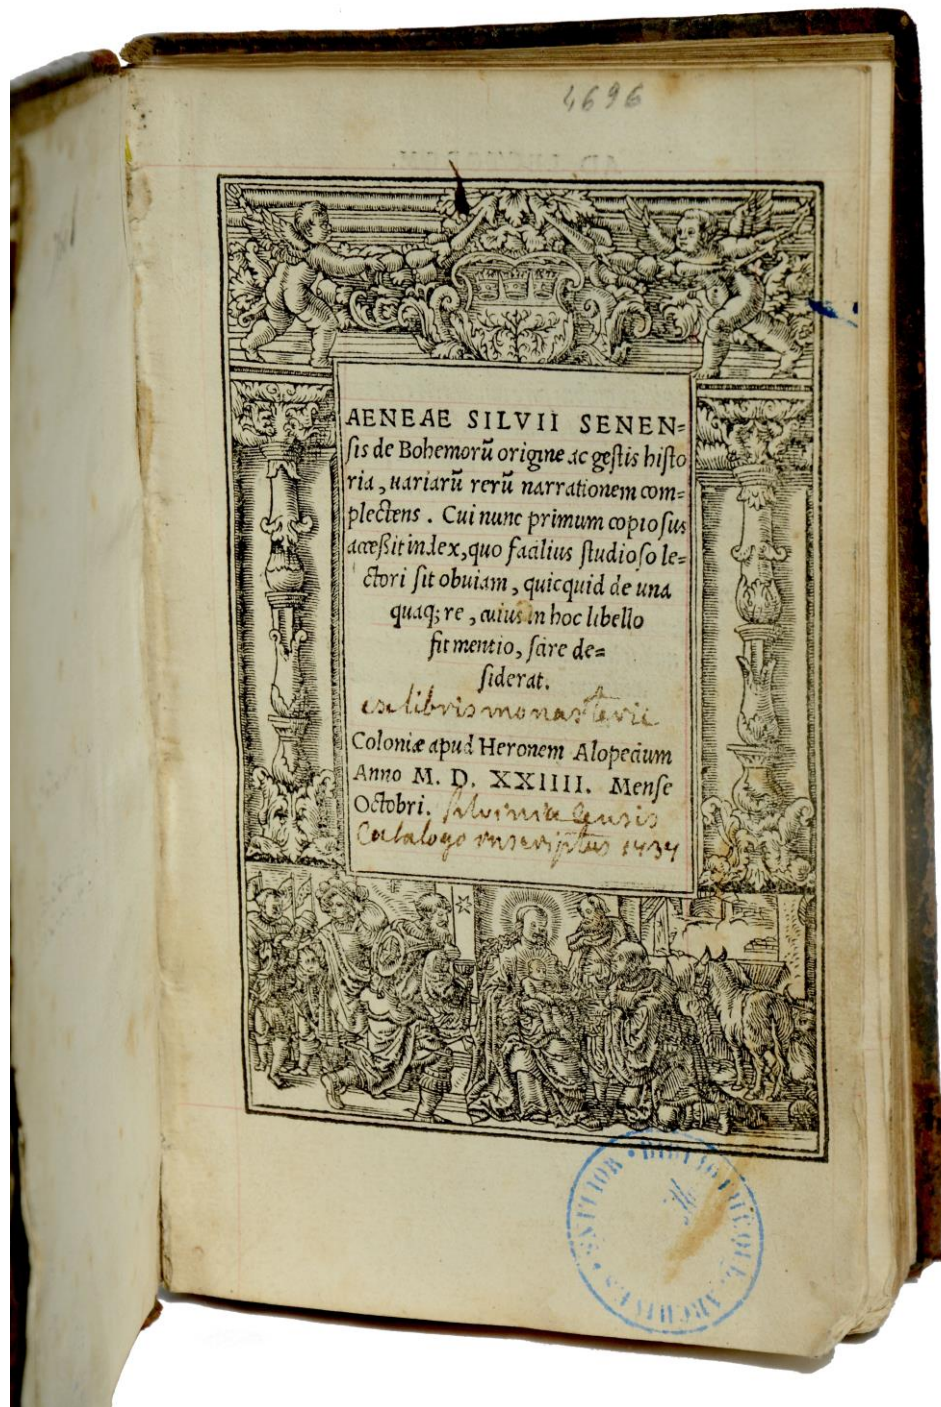 4696
AENEAE SILVII SENEN=
sis de Bohemorū origine ac gestis histo
ria, uariarū rerū narrationem com=
plectens. Cui nunc primum copiosus
accessit index, quo facilius studioso le=
ctori sit obuiam, quicquid de una
quaq; re, cuius in hoc libello
fit mentio, scire de=
siderat.
ex libris monasterii
Coloniæ apud Heronem Alopecium
Anno M. D. XXIIII. Mense
Octobri. silviniacensis
Catalogo inscriptus 1737
BIBLIOTHEQUE ARCHIVES